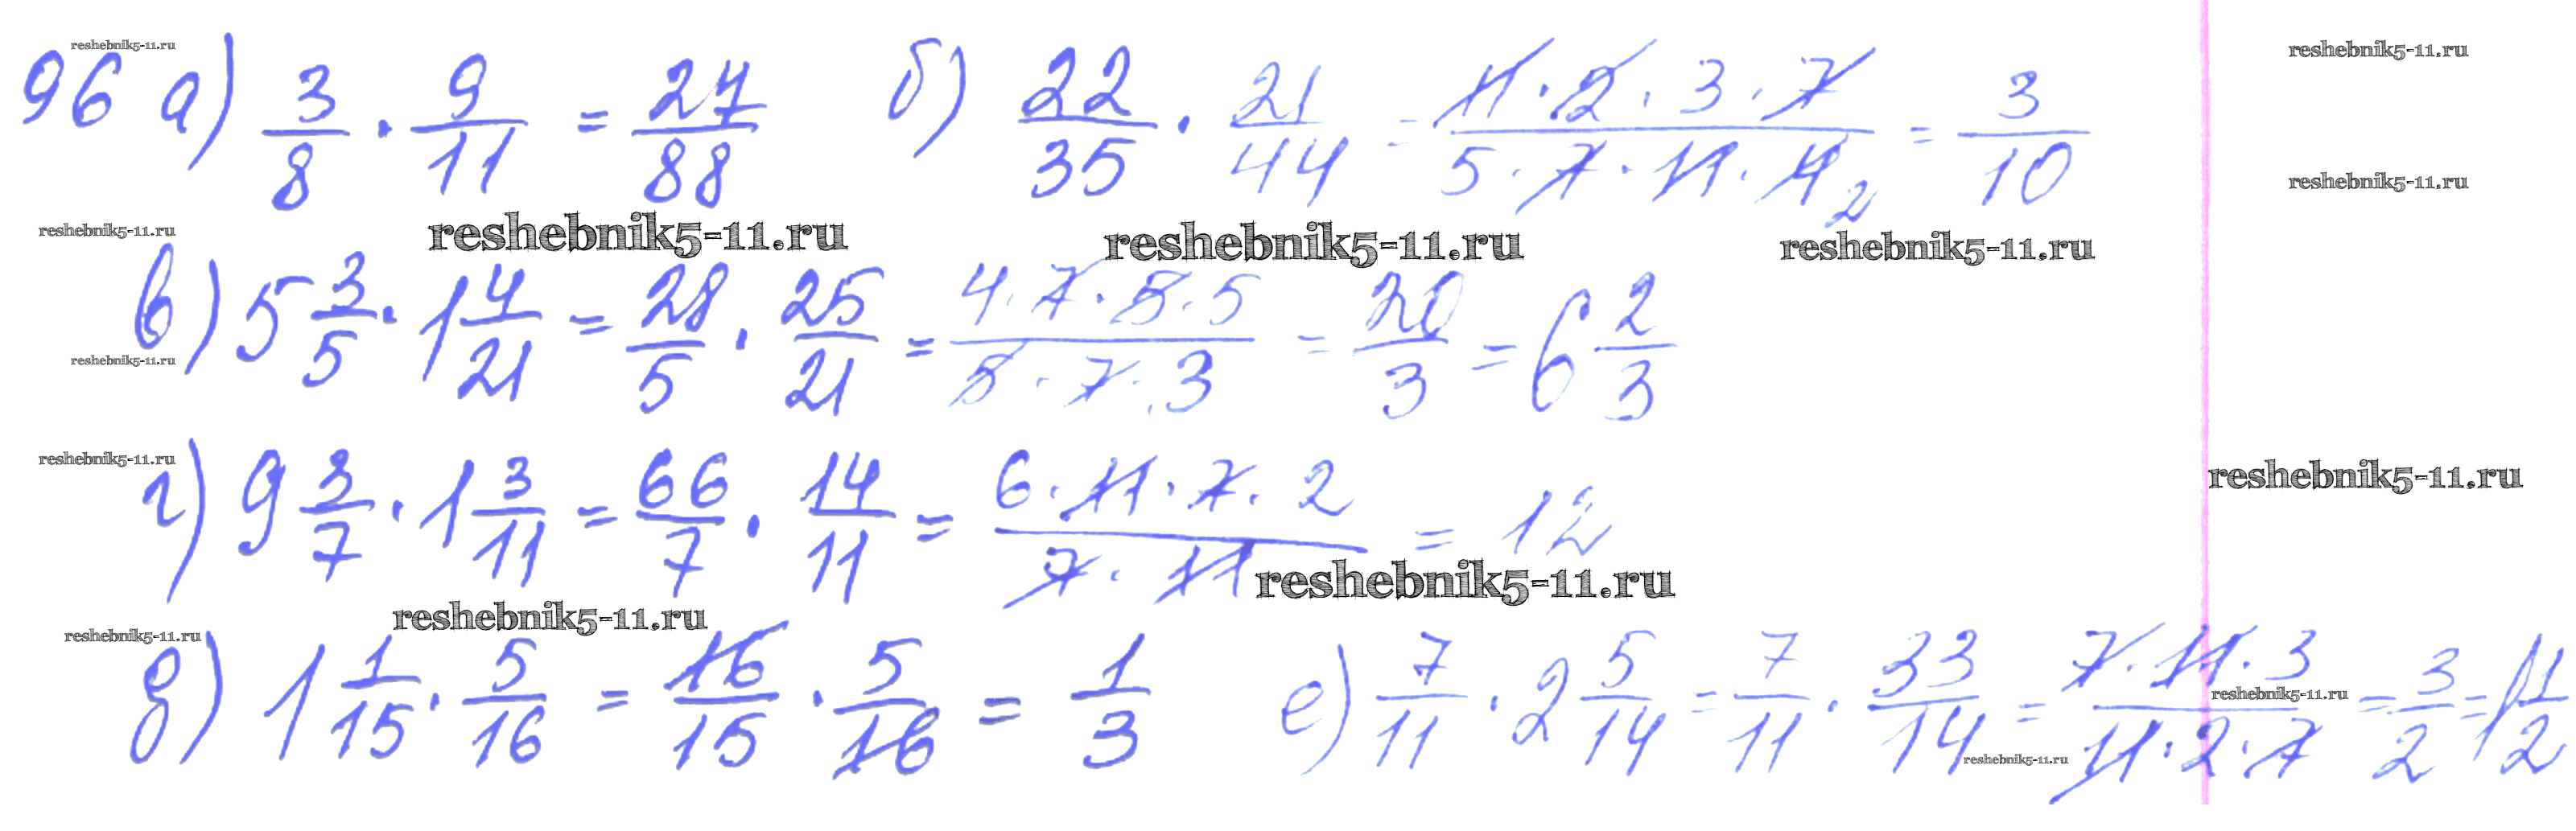 reshebnik5-11.ru reshebnik5-11.ru
96 а) 3/8 · 9/11 = 27/88 б) 22/35 · 21/44 = 11·2·3·7/5·7·11·4 2 = 3/10
reshebnik5-11.ru
reshebnik5-11.ru reshebnik5-11.ru reshebnik5-11.ru reshebnik5-11.ru
в) 5 3/5 · 1 4/21 = 28/5 · 25/21 = 4·7·5·5/5·7·3 = 20/3 = 6 2/3
reshebnik5-11.ru
reshebnik5-11.ru reshebnik5-11.ru
г) 9 3/7 · 1 3/11 = 66/7 · 14/11 = 6·11·7·2/7·11 = 12
reshebnik5-11.ru
reshebnik5-11.ru reshebnik5-11.ru
д) 1 1/15 · 5/16 = 16/15 · 5/16 = 1/3 е) 7/11 · 2 5/14 = 7/11 · 33/14 = 7·11·3/11·2·7 = 3/2 = 1 1/2
reshebnik5-11.ru
reshebnik5-11.ru